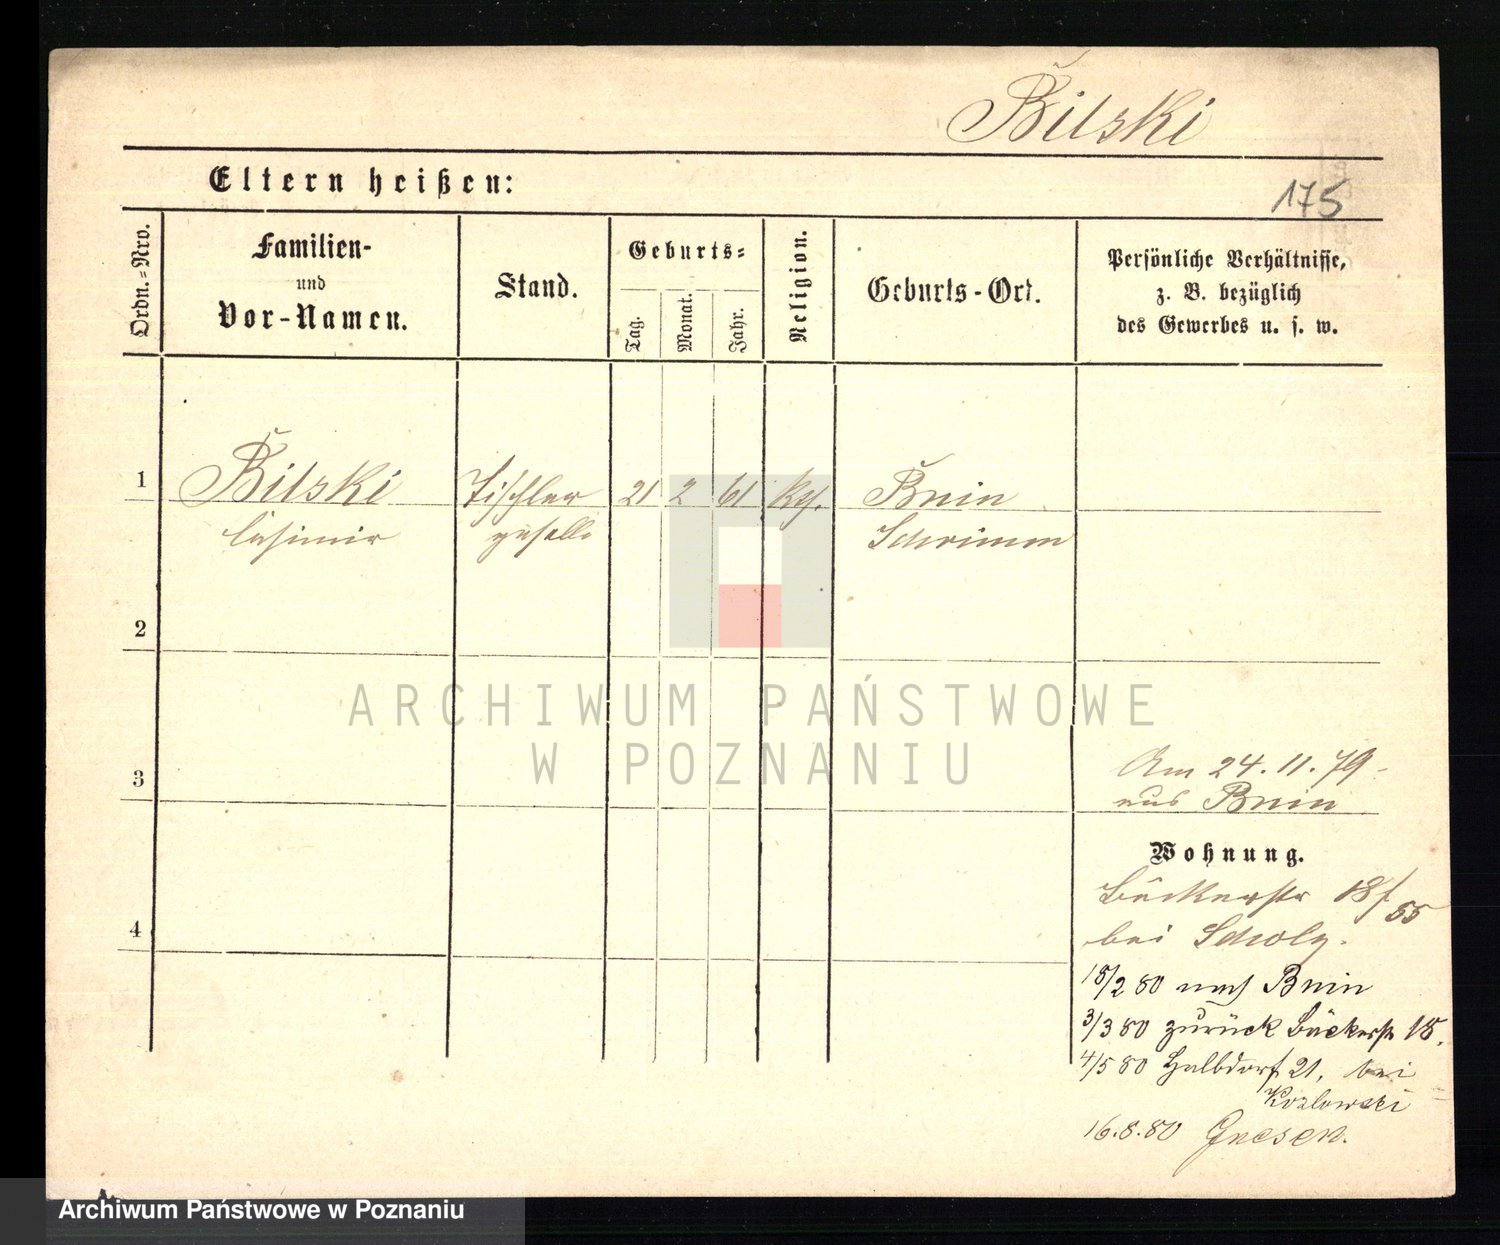 Bilski
Eltern heißen:
175
Ordn.=Nro.
Familien-
und
Vor-Namen.
Stand.
Geburts=
Tag.
Monat.
Jahr.
Religion.
Geburts-Ort.
Persönliche Verhältnisse,
z. B. bezüglich
des Gewerbes u. s. w.
1
Bilski Tischler 21 2 61 kth. Bnin
Casimir geselle Schrimm
2
ARCHIWUM PAŃSTWOWE
W POZNANIU
3
Am 24.11.79
aus Bnin
Wohnung.
Bäckerstr 18/
4
bei Scholz.
15/2 80 nach Bnin
3/3 80 zurück Bäckerstr 18.
4/5 80 Halbdorf 21, bei
Kozlowski
16.8.80 Gnesen.
Archiwum Państwowe w Poznaniu